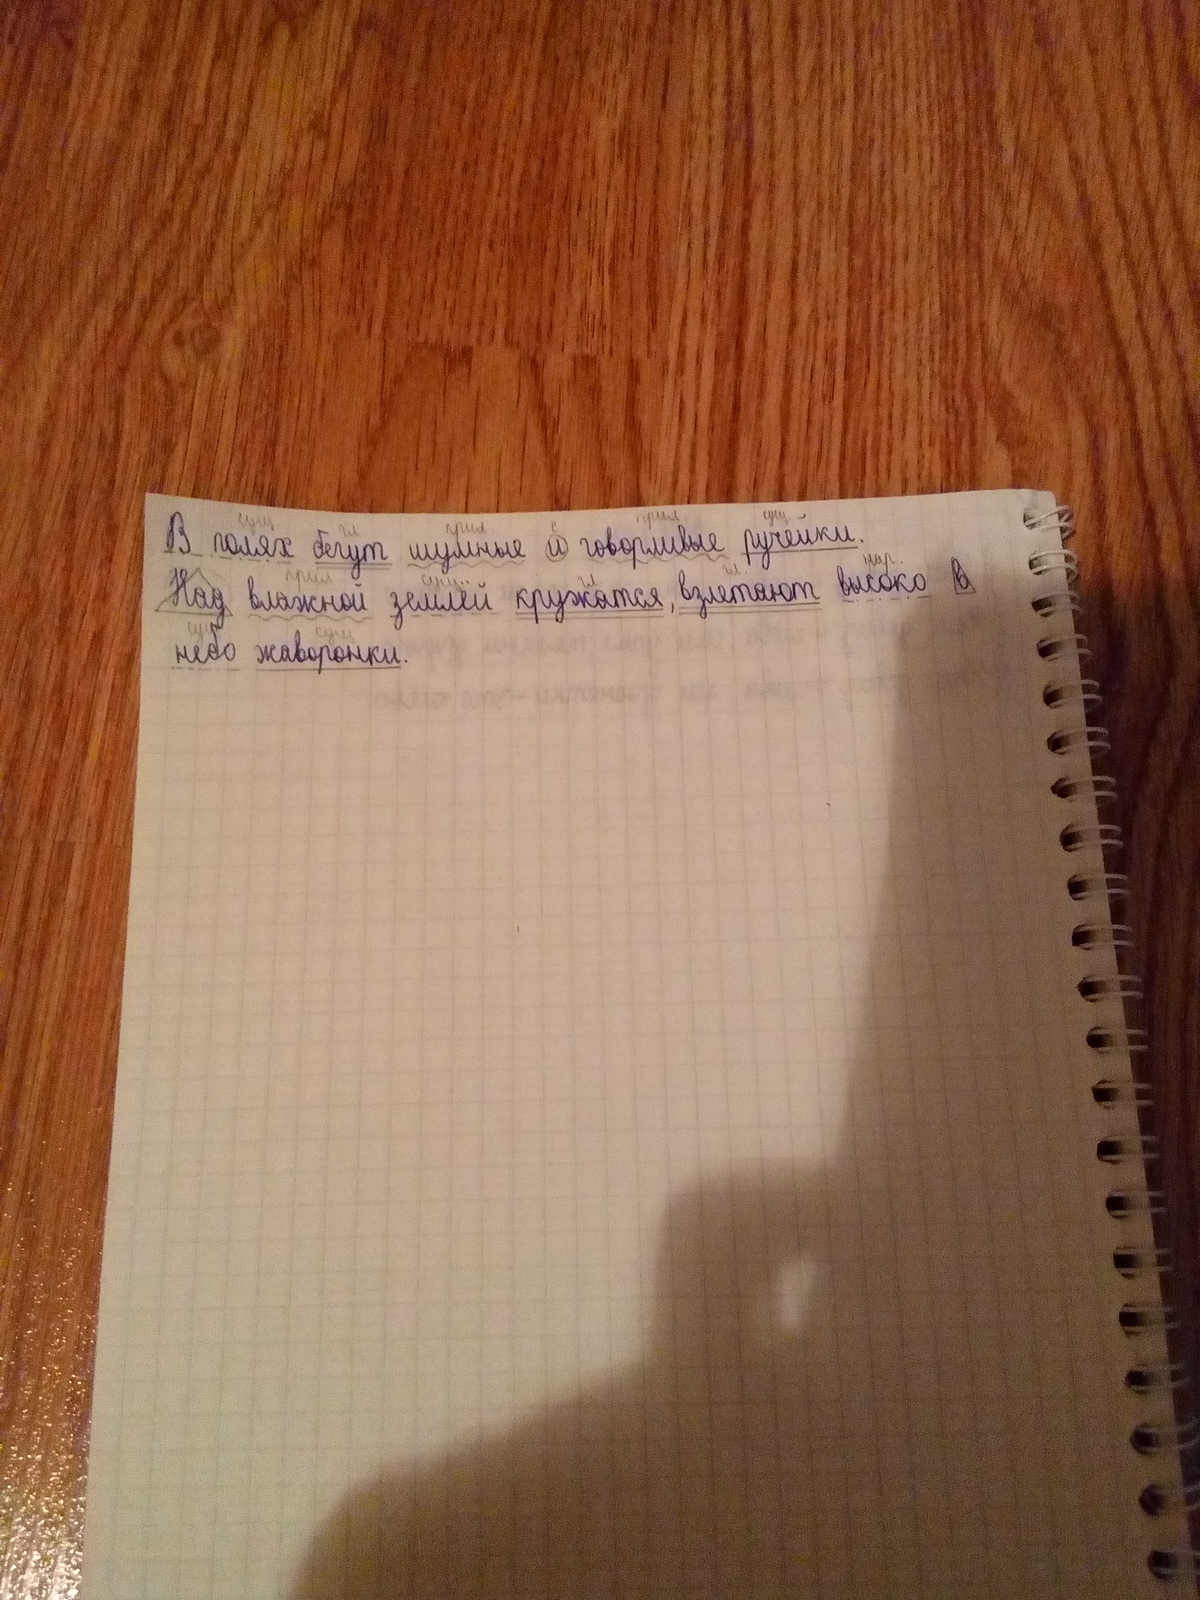 сущ гл прил с прил сущ
В полях бегут шумные и говорливые ручейки.
прил сущ. гл гл. нар.
Над влажной землёй кружатся, взлетают высоко в
сущ сущ
небо жаворонки.